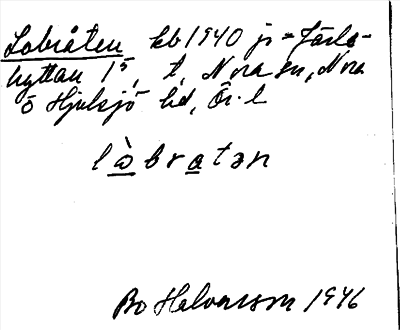 Lobråten kb 1940 js = Järle-
hyttan 1⁵, t, Nora sn, Nora
o Hjulsjö hd, Ör. l
l ò b r a t ə n
Bo Halvarsson 1946